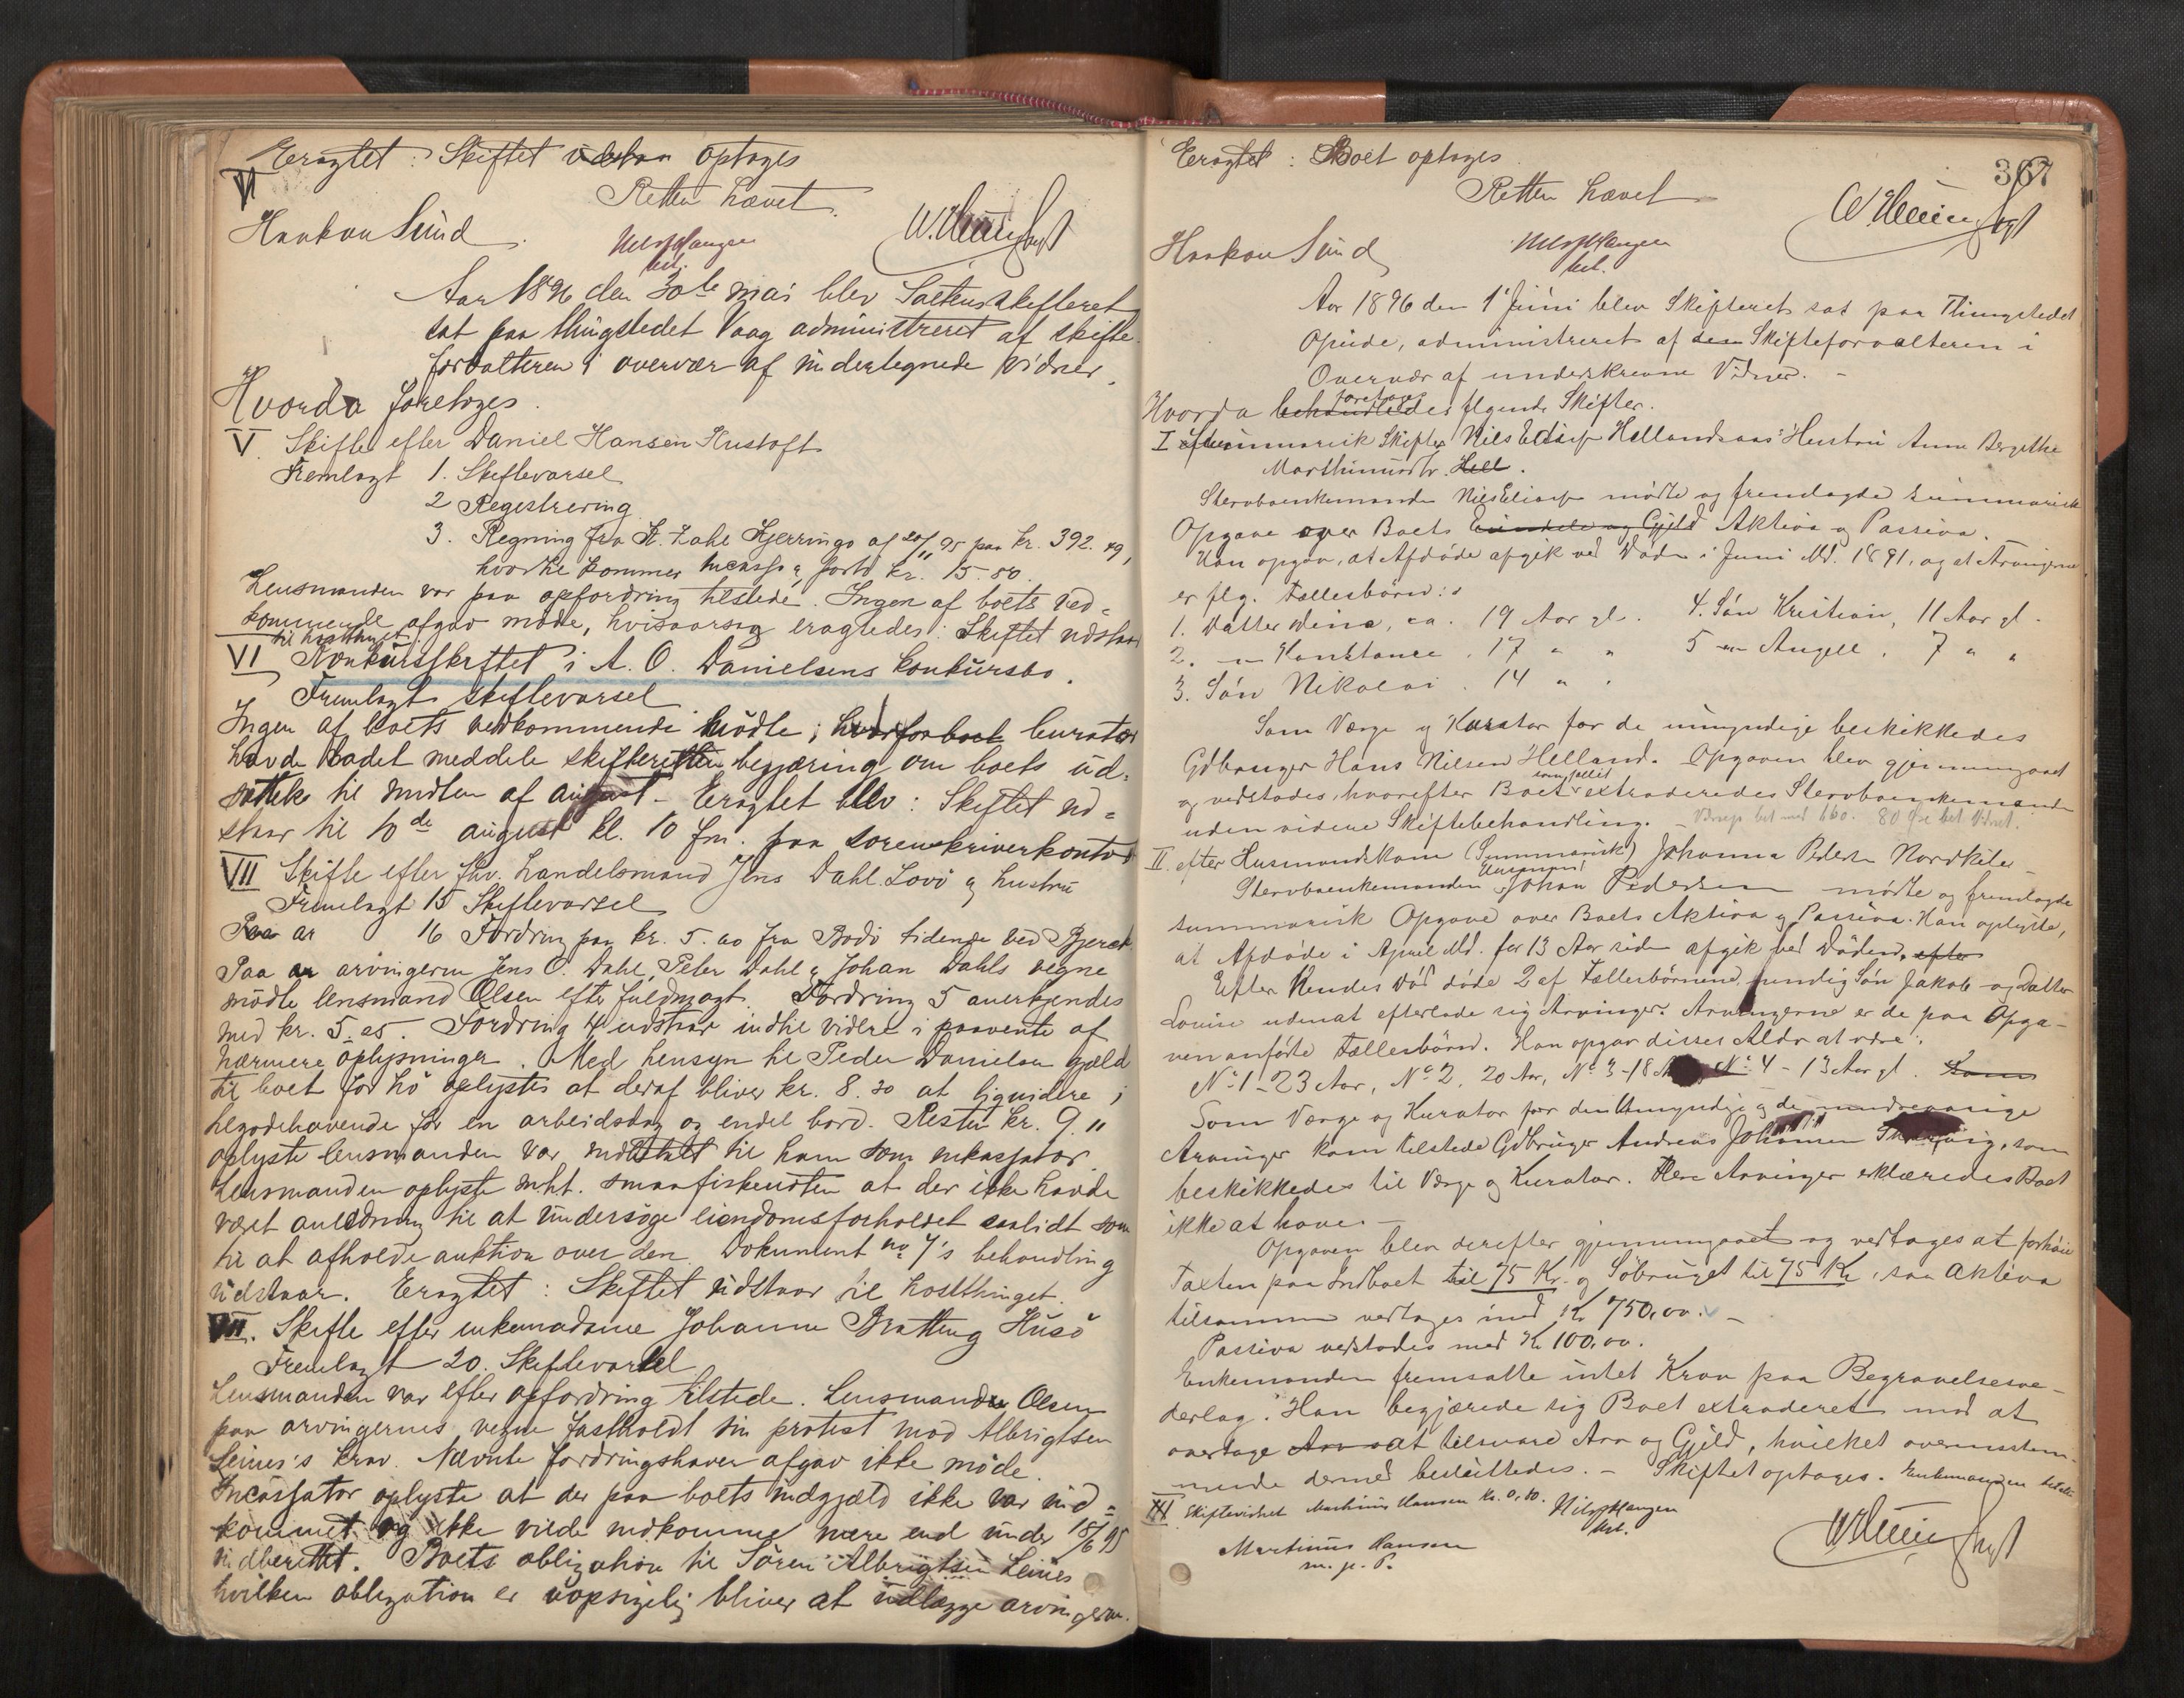 Eragtet: Skiftet optages
VI
Retten hævet.
Haakon Sund.
Aar 1896 den 30te mai blev Saltens skifteret
sat paa thingstedet Vaag administreret af skifte-
forvalteren i overvær af undertegnede vidner.
Hvorda foretoges
V. Skifte efter Daniel Hansen Kustoft
Fremlagt 1. Skiftevarsel
2 Registrering
3. Regning fra K. Zahl Kjerringø af 20/11 95 paa kr. 392.49,
hvortil kommer incasso & porto kr. 15.80.
Lensmanden var paa opfordring tilstede. Ingen af boets ved-
kommende afgav møde, hvisaarsag eragtedes: Skiftet udstaar
til høstthinget.
VI Konkursskiftet i A. O. Danielsens konkursbo.
Fremlagt skiftevarsel
Ingen af boets vedkommende mødte; hvorfor boet curator
havde ladet meddele skifteretten begjæring om boets ud-
sættelse til midten af august. Eragtet blev: Skiftet ud-
staar til 10de august kl. 10 fm. paa sorenskriverkontoret
VII Skifte efter fhv. handelsmand Jens Dahl Lovø & hustru
Fremlagt 15 Skiftevarsel
Paa ar 16 Fordring paa kr. 5.60 fra Bodø tidende ved
Paa ar arvingerne Jens O. Dahl, Peter Dahl & Johan Dahls vegne
mødte lensmand Olsen efter fuldmagt. Fordring 5 anerkjendes
med kr. 5.05. Fordring 4 udstaar indtil videre i paavente af
nærmere oplysninger. Med hensyn til Peder Danielsen gjæld
til boet for hø oplystes at deraf bliver kr. 8.30 at liquidere i
tilgodehavende for en arbeidsdag og endel bord. Resten kr. 9."
oplyste lensmanden var indbetalt til ham som inkassator.
Lensmanden oplyste mht. smaafiskeudsten at der ikke havde
været anledning til at undersøge eiendomsforholdet saalidt som
til at afholde auktion over den. Dokument no 7's behandling
udstaar. Eragtet: Skiftet udstaar til høstthinget.
VIII. Skifte efter enkemadame Johanna Bratteng Husø
Fremlagt 20. Skiftevarsel
Lensmanden var efter opfordring tilstede. Lensmanden Olsen
paa arvingernes vegne fastholdt sin protest mod Albrigtsen
Leines's krav. Nævnte fordringshaver afgav ikke møde.
Incassator oplyste at der paa boets indgjæld ikke var ind-
kommet og ikke vilde indkomme mere end under 18/6 95
indberettet. Boets obligation til Søren Albrigtsen Leines
hvilken obligation er uopsigelig bliver at udlægge arvingerne.
367
Eragtet: Boet optages.
Retten hævet
Haakon Sund
Aar 1896 den 1 Juni blev Skifteret sat paa Thingstedet
Opeide, administreret af dem Skifteforvalteren i
Overvær af underskrevne Vidner. -
Hvorda behandledes foretoges flgende Skifter.
I efter summarisk Skifte Nils Eliass. Hellandsaas' Hustru Anne Bergithe
Marthinusdtr. Hell.
Stervboenkemanden Nils Eliass. mødte og fremlagde summarisk
Opgave over Boets Eiendele og Gjeld Aktiva og Passiva.
Han opgav, at Afdøde afgik ved Døden i Juni Md. 1891, og at Arvingerne
er flg. Fællesbørn:
1. Datter Dina, ca. 19 Aar gl. 4. Søn Kristian, 11 Aar gl.
2. " Konstance . 17 " " 5 " Angell . 7 " "
3. Søn Nikolai . 14 " "
Som Værge og Kurator for de umyndige beskikkedes
Gdbruger Hans Nilsen Helland. Opgaven blev gjennemgaaet
og vedstodes, hvorefter Boet extraderedes Stervboenkemanden
uden videre Skiftebehandling.
II. efter Husmandskone (Summarisk) Johanna Peders. Nordkil
Stervboenkemanden Johan Pedersen mødte og fremlagde
summarisk Opgave over Boets Aktiva og Passiva. Han oplyste,
at Afdøde i April Md. for 13 Aar siden afgik ved Døden, efter
Efter Hendes Død døde 2 af Fællesbørnene, myndig Søn Jakob og Datter
Lovise udenat efterlade sig Arvinger. Arvingerne er de paa Opga-
ven anførte Fællesbørn. Han opgav disses Alder at være:
No 1 - 23 Aar, No 2. 20 Aar, No 3 - 18 Aar, No 4 - 13 Aar gl. Som
Som Værge og Kurator for den Umyndige og de mindreaarige
Arvinger kom tilstede Gdbruger Andreas Johannesen som
beskikkedes til Værge og Kurator. Flere Arvinger erklæredes Boet
ikke at have. -
Opgaven blev derefter gjennemgaaet og vedtoges at forhøie
Taxten paa Indboet til 75 Kr. og Søbruget til 75 Kr, saa Aktiva
tilsammen vedtages med Kr 750,00. -
Passiva vedstodes med Kr 100,00.
Enkemanden fremsatte intet Krav paa Begravelsesve-
derlag. Han begjærede sig Boet extraderet mod at
overtage Arv at tilsvare Arv og Gjeld, hvilket overensstem-
mende dermed besluttedes. - Skiftet optages. Enkemanden betalte
III Skiftevidnet Martinus Hansen Kr. 0,80.
Martinus Hansen
m. p. P.